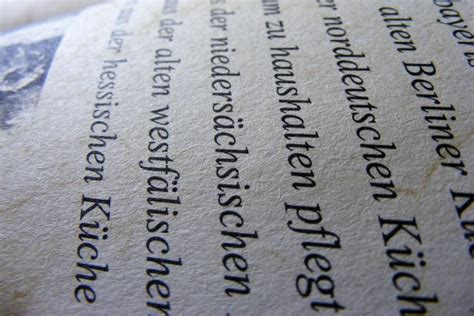 bayeris
alten Berliner Kü
er norddeutschen Küch
am zu haushalten pflegt
s der niedersächsischen
us der alten westfälischen
aus der hessischen Küche